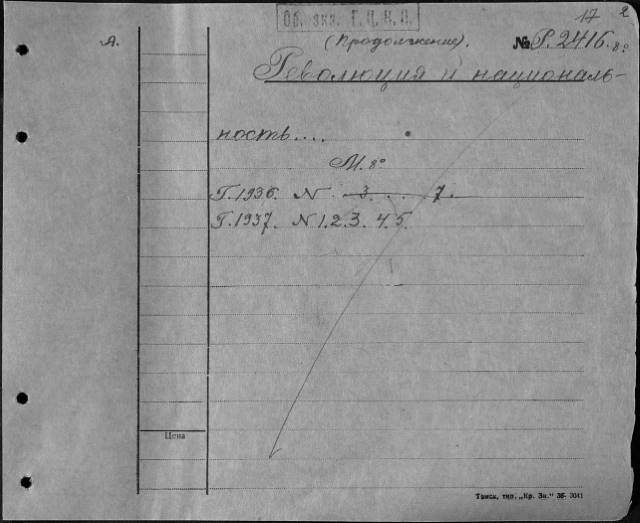 17 2
Об. экз. Г.Ц.К.П.
А. (Продолжение). № Р. 2416. 8°
Революция и националь-
ность....
М. 8°
Г. 1936. N 3... 7.
Г. 1937. N 1. 2. 3. 4. 5.
Цена
Томск, тип. „Кр. Зн." 36-3041